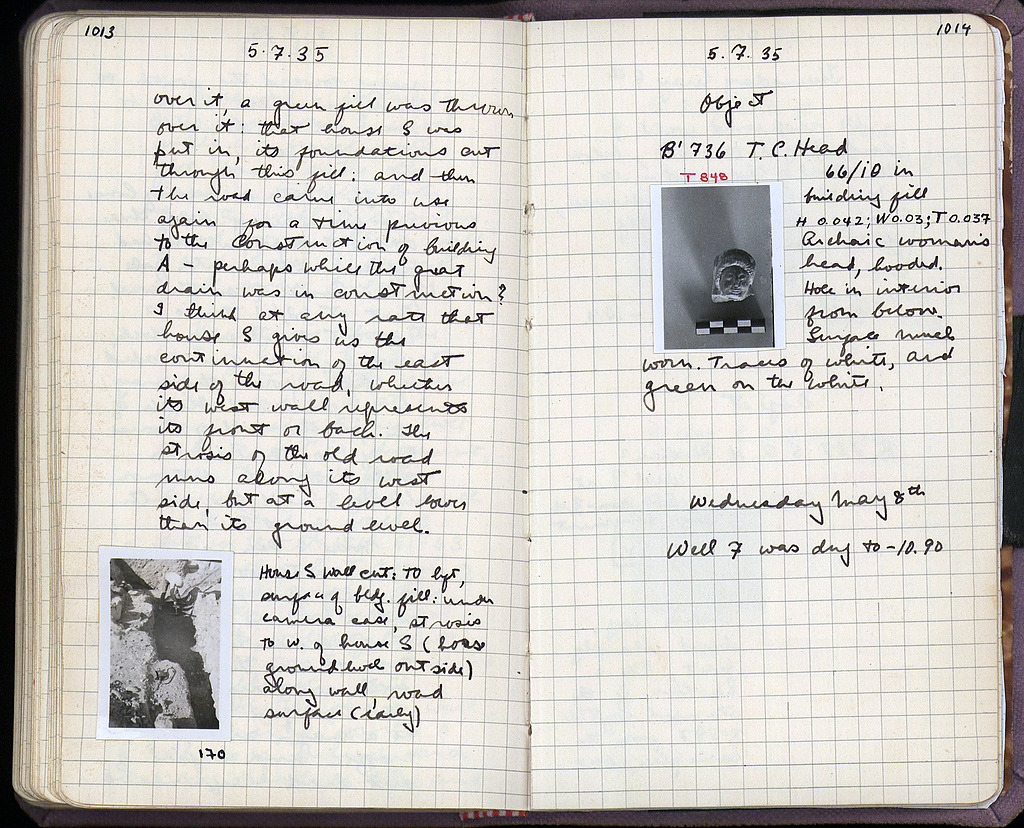 1013
5.7.35
over it, a green fill was thrown
over it: that house S was
put in, its foundations cut
through this fill: and then
the road came into use
again for a time previous
to the construction of building
A - perhaps while the great
drain was in construction?
I think at any rate that
house S gives us the
continuation of the east
side of the road, whether
its west wall represents
its front or back. The
strosis of the old road
runs along its west
side, but at a level lower
than its ground level.
House S wall cut: to left,
surface of bldg. fill: under
camera case, strosis
to W. of house S (house
ground level outside)
along wall, road
surface (early)
170
1014
5.7.35
Object
B' 736 T.C. Head
T 848
66/10 in
building fill
H 0.042; W 0.03; T 0.037
Archaic woman's
head, hooded.
Hole in interior
from below.
Surface much
worn. Traces of white, and
green on the white.
Wednesday May 8th
Well 7 was dug to -10.90